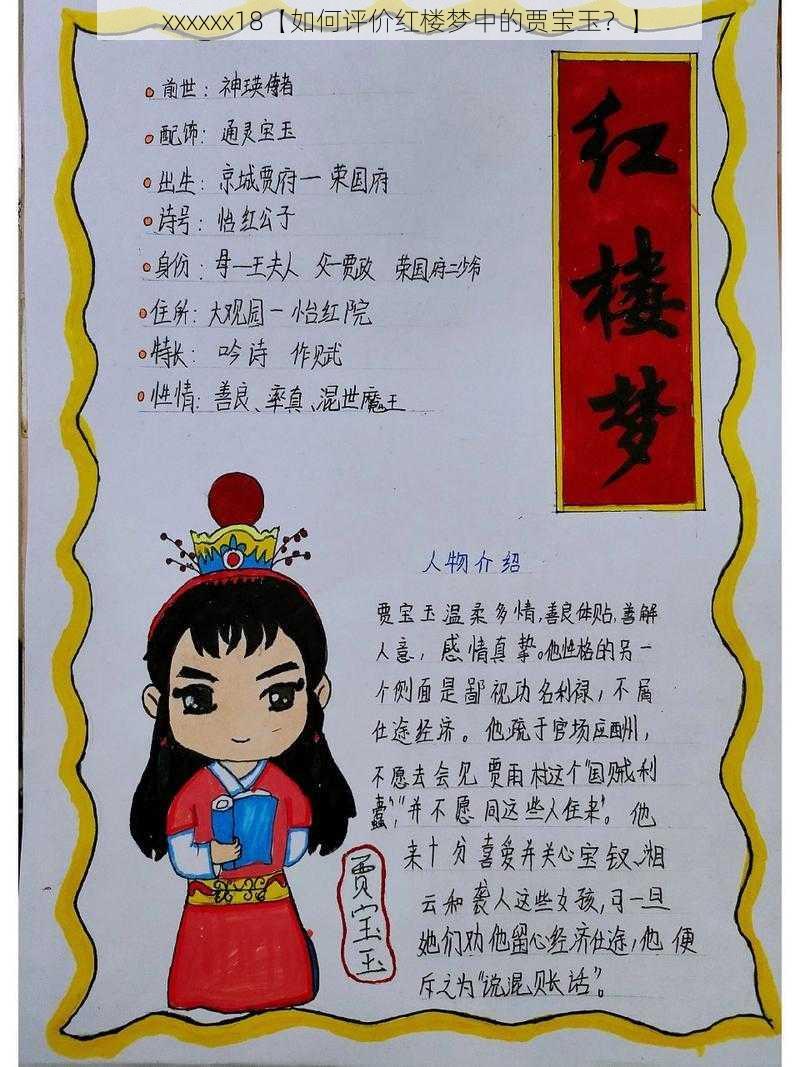 xxxxxx18【如何评价红楼梦中的贾宝玉？】
前世：神瑛侍者
配饰：通灵宝玉
出生：京城贾府一荣国府
诗号：怡红公子
身份：母一王夫人 父一贾政 荣国府二少爷
住所：大观园一怡红院
特长：吟诗 作赋
性情：善良、率真、混世魔王
红楼梦
人物介绍
贾宝玉温柔多情,善良体贴,善解
人意，感情真挚。他性格的另一
个侧面是鄙视功名利禄，不屑
仕途经济。他疏于官场应酬，
不愿去会见贾雨村这个“国贼利
蠹”，并不愿同这些人往来。他
来十分喜爱并关心宝钗、湘
云和袭人这些女孩,可一旦
她们劝他留心经济仕途,他便
斥之为“说混账话”。
贾宝玉